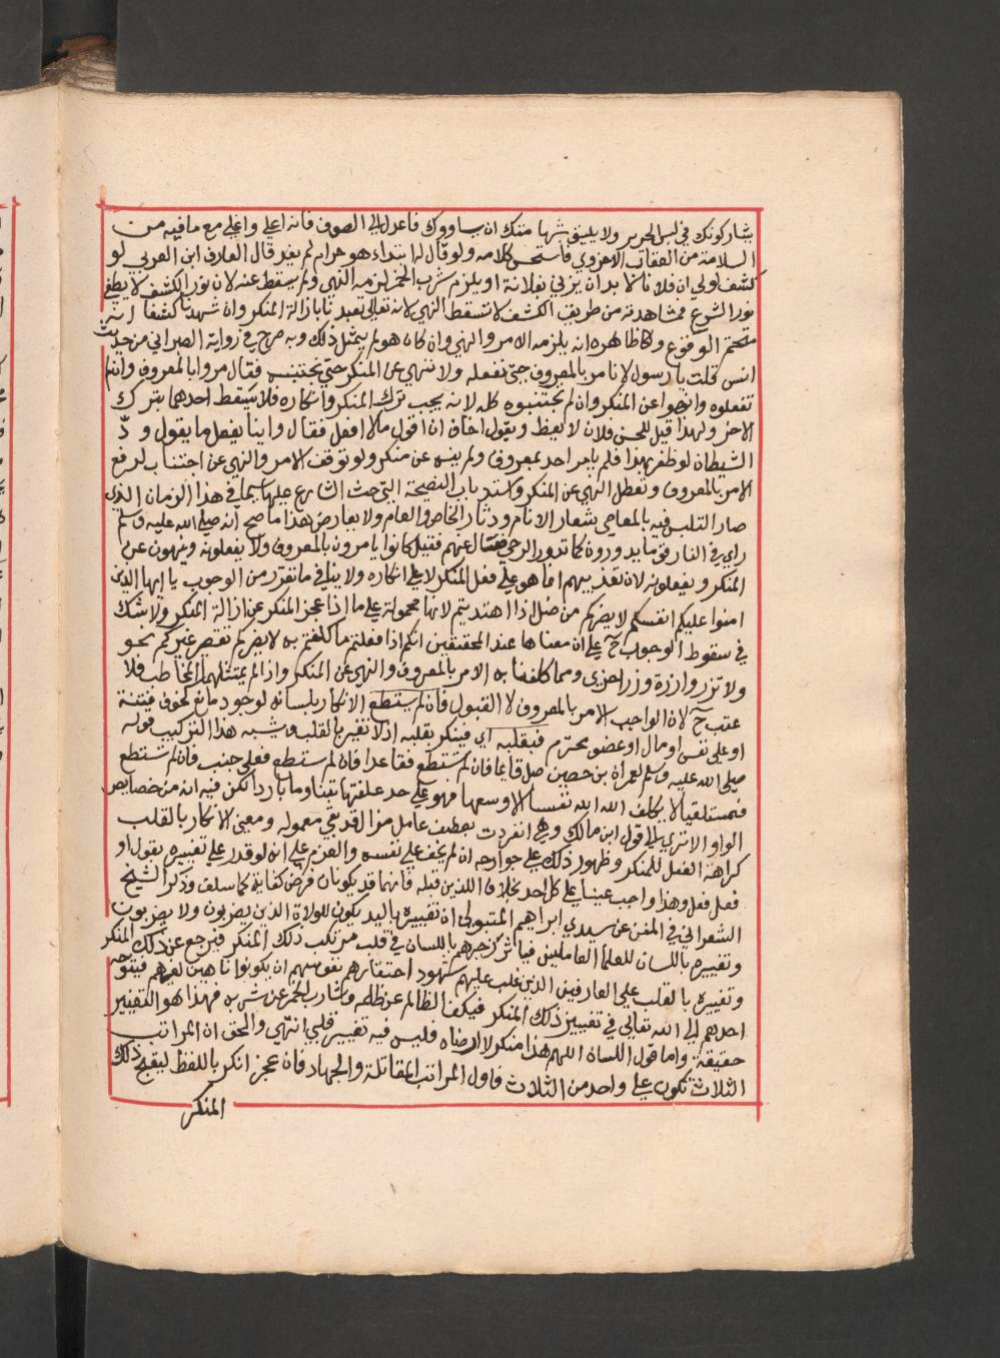 يشاركونك في لبس الحرير ولا يليق بشهامتك ان يساووك فاعدل الي الصوف فانه اعلي واغلي مع ما فيه من
السلامة من العقاب الاخروي فاستحسن كلامه ولو قال له ابتداء هو حرام لم يفد قال العارف ابن العربي لو
كشف لولي ان فلانا لا بد ان يزني بفلانة او يلزم شرب الخمر لزمه النهي ولم يسقط عنه لان نور الكشف لا يطفي
نور الشرع فمشاهدته من طريق الكشف لا تسقط النهي لانه تعالي تعبدنا بازالة المنكر وان شهدنا كشفا انه
متحتم الوقوع وكان ظاهره انه يلزمه الامر والنهي وان كان هو لم يمتثل ذلك وبه صرح في رواية الطبراني من حديث
انس قلت يا رسول لا نامر بالمعروف حتي نفعله ولا ننهي عن المنكر حتي نجتنبه فقال مروا بالمعروف وان لم
تفعلوه وانهوا عن المنكر وان لم تجتنبوه كله لانه يجب ترك المنكر وانكاره فلا يسقط احدهما بترك
الاخر ولهذا قيل للحسن فلان لا يعظ ويقول اخاف ان اقول ما لا افعل فقال واينا يفعل ما يقول ودّ
الشيطان لو ظفر بهذا فلم يامر احد بمعروف ولم ينه عن منكر ولو توقف الامر والنهي عن اجتناب لرفع
الامر بالمعروف وتعطل النهي عن المنكر وانسد باب النصيحة التي حث الشارع عليها سيما في هذا الزمان الذي
صار التلبس فيه بالمعاصي شعار الانام ودثار الخاص والعام ولا يعارض هذا ما صح انه صلي الله عليه وسلم
راي في النار قوما يدورون كما تدور الرحي فسال عنهم فقيل كانوا يامرون بالمعروف ولا يفعلونه وينهون عن
المنكر ويفعلونه لان تعذيبهم انما هو علي فعل المنكر لا علي انكاره ولا ينافي ما تقرر من الوجوب يا ايها الذين
امنوا عليكم انفسكم لا يضركم من ضل اذا اهتديتم لانها محمولة علي ما اذا عجز المنكر عن ازالة المنكر ولا شك
في سقوط الوجوب ح علي ان معناها عند المحققين انكم اذا فعلتم ما كلفتم به لا يضركم تقصير غيركم نحو
ولا تزر وازرة وزر اخري ومما كلفنا به الامر بالمعروف والنهي عن المنكر واذا لم يمتثلهما المخاطب فلا
عتب ح لان الواجب الامر بالمعروف لا القبول فان لم يستطع الانكار بلسانه لوجود مانع كخوف فتنة
او علي نفس او مال او عضو محترم فبقلبه اي فينكر بقلبه اذ لا تغيير بالقلب وشبه هذا التركيب قوله
صلي الله عليه وسلم لعمران بن حصين صل قايما فان لم تستطع فقاعدا فان لم تستطع فعلي جنب فان لم تستطع
فمستلقيا لا يكلف الله نفسا الا وسعها فهو علي حد علفتها تبنا وما باردا لكن فيه انه من خصايص
الواو الا تري الي قول ابن مالك وهي انفردت بعطف عامل مزال قد بقي معموله ومعني الانكار بالقلب
كراهة الفعل للمنكر وظهور ذلك علي جوارحه ان لم يخف علي نفسه والعزم علي انه لو قدر علي تغييره بقول او
فعل فعل وهذا واجب عينا علي كل احد بخلاف اللذين قبله فانهما قد يكونان فرض كفاية كما سلف وذكر الشيخ
الشعراني في المنن عن سيدي ابراهيم المتبولي ان تغييره باليد يكون للولاة الذين يضربون ولا يضربون
وتغييره باللسان للعلماء العاملين فياثر زجرهم باللسان في قلب مرتكب ذلك المنكر فيرجع عن ذلك المنكر
وتغييره بالقلب علي العارفين الذين غلب عليهم شهود احتقارهم نفوسهم ان يكونوا ناهين لغيرهم فيتوجه
احدهم الي الله تعالي في تغيير ذلك المنكر فيكف الظالم عن ظلمه وشارب الخمر عن شربه فهذا هو التغيير
حقيقة واما قول اللسان اللهم هذا منكر لا ارضاه فليس فيه تغيير قلبي انتهي والحق ان المراتب
الثلاث تكون علي واحد من الثلاث فاول المراتب المقاتلة والجهاد فان عجز انكر باللفظ ليقبح ذلك
المنكر